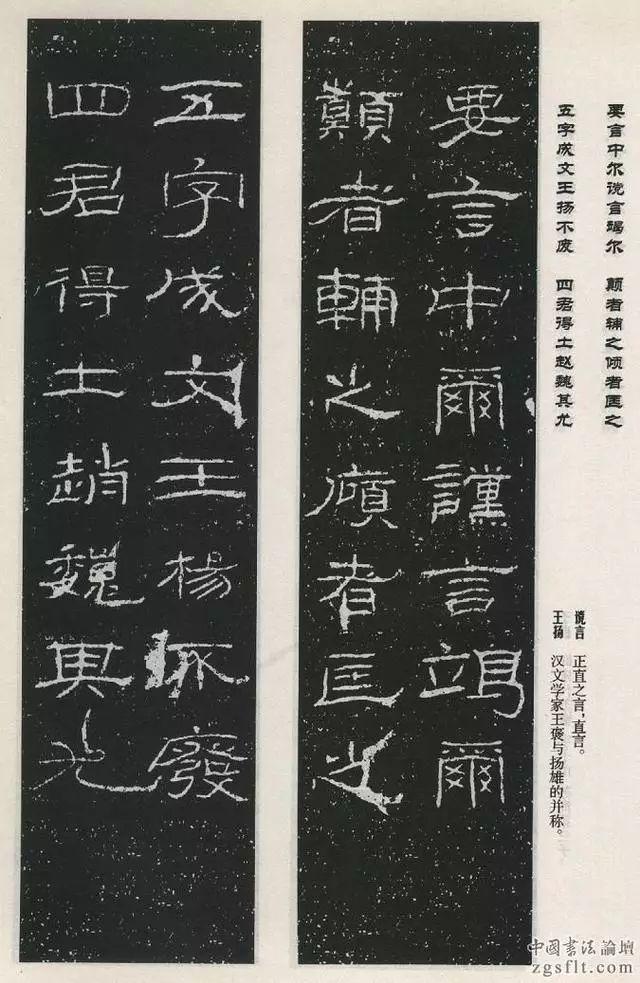 要言中尔谠言竭尔　颠者辅之倾者匡之
五字成文王扬不废　四君得士赵魏其尤
谠言　正直之言，直言。
王扬　汉文学家王褒与扬雄的并称。
要言中爾讜言竭爾
顛者輔之傾者匡之
五字成文王楊不廢
四君得士趙魏其尤
中國書法論壇
zgsflt.com